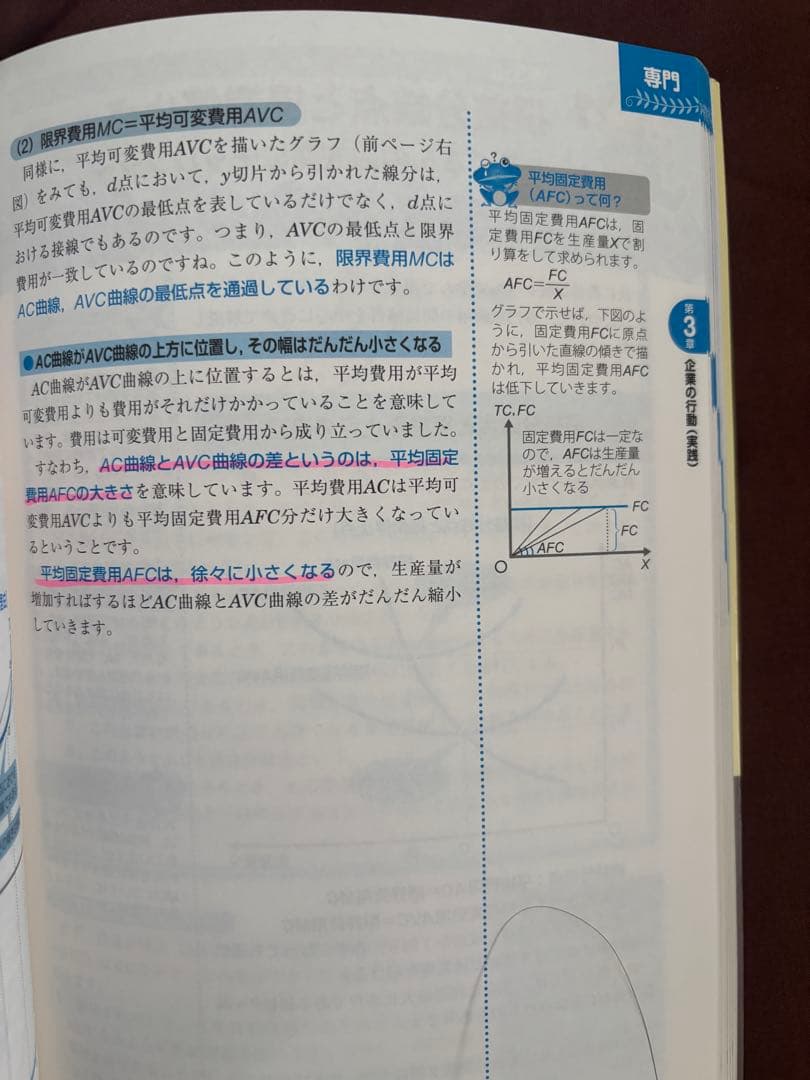 専門
(2) 限界費用MC=平均可変費用AVC
同様に，平均可変費用AVCを描いたグラフ（前ページ右
図）をみても，d点において，y切片から引かれた線分は，
平均可変費用AVCの最低点を表しているだけでなく，d点に
おける接線でもあるのです。つまり，AVCの最低点と限界
費用が一致しているのですね。このように，限界費用MCは
AC曲線，AVC曲線の最低点を通過しているわけです。
●AC曲線がAVC曲線の上方に位置し，その幅はだんだん小さくなる
AC曲線がAVC曲線の上に位置するとは，平均費用が平均
可変費用よりも費用がそれだけかかっていることを意味して
います。費用は可変費用と固定費用から成り立っていました。
すなわち，AC曲線とAVC曲線の差というのは，平均固定
費用AFCの大きさを意味しています。平均費用ACは平均可
変費用AVCよりも平均固定費用AFC分だけ大きくなってい
るということです。
平均固定費用AFCは，徐々に小さくなるので，生産量が
増加すればするほどAC曲線とAVC曲線の差がだんだん縮小
していきます。
平均固定費用
（AFC）って何？
平均固定費用AFCは，固
定費用FCを生産量Xで割
り算をして求められます。
AFC=FC/X
グラフで示せば，下図のよ
うに，固定費用FCに原点
から引いた直線の傾きで描
かれ，平均固定費用AFC
は低下していきます。
TC, FC
固定費用FCは一定な
ので，AFCは生産量
が増えるとだんだん
小さくなる
FC
FC
AFC
O
X
第3章
企業の行動（実践）